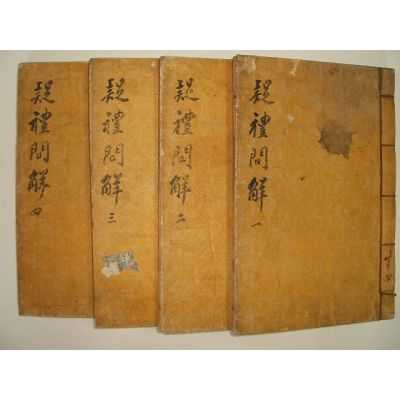 疑禮問解 一
疑禮問解 二
疑禮問解 三
疑禮問解 四